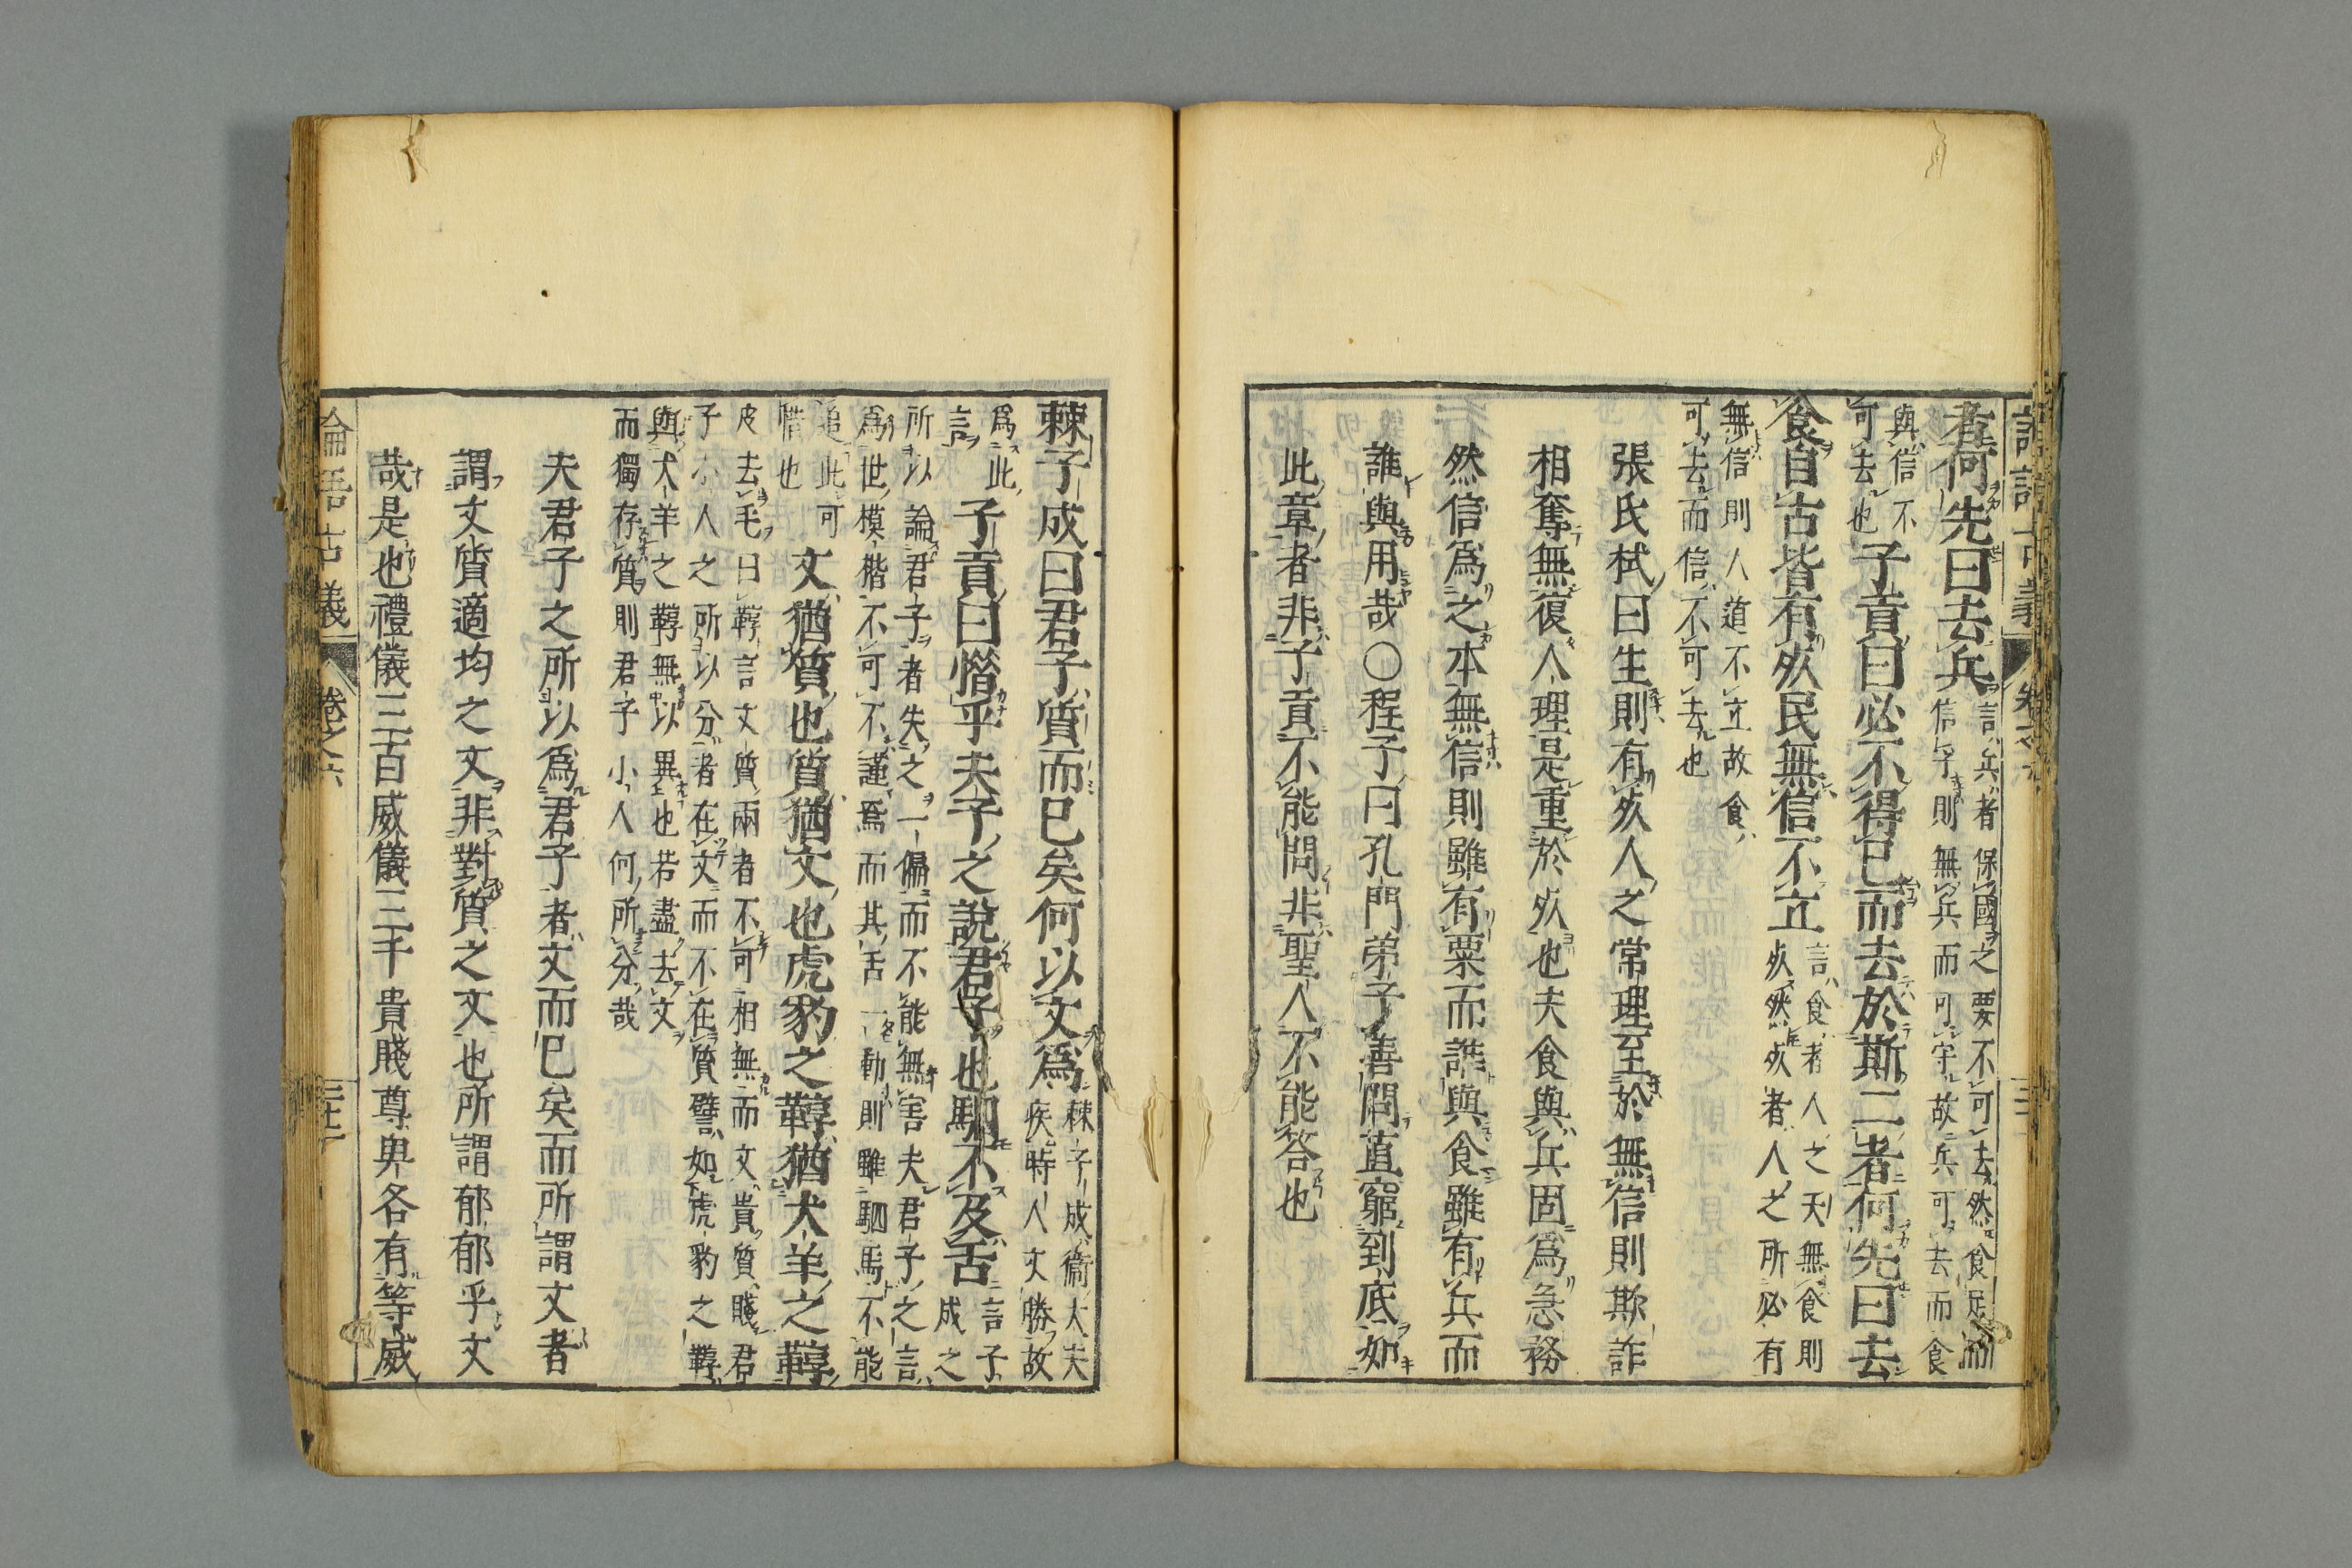 者何先曰去兵言兵者保國之要不可去然食足而
信孚則無兵而可守故兵可去而食
與信不
可去也子貢曰必不得已而去於斯二者何先曰去
食自古皆有死民無信不立言食者人之天無食則
死然死者人之所必有
無信則人道不立故食
可去而信不可去也
張氏栻曰生則有死人之常理至於無信則欺詐
相奪無復人理是重於死也夫食與兵固為急務
然信為之本無信則雖有粟而誰與食雖有兵而
誰與用哉〇程子曰孔門弟子善問直窮到底如
此章者非子貢不能問非聖人不能答也
棘子成曰君子質而已矣何以文為棘子成衞大夫
疾時人文勝故
為此
言子貢曰惜乎夫子之說君子也駟不及舌言子
成之
所以論君子者失之一偏而不能無害夫君子之言
為世模楷不可不謹焉而其舌一動則雖駟馬不能
追此可
惜也文猶質也質猶文也虎豹之鞟猶犬羊之鞟
皮去毛曰鞟言文質兩者不可相無而文貴質賤君
子小人之所以分者在文而不在質譬如虎豹之鞟
與犬羊之鞟無以異也若盡去文
而獨存質則君子小人何所分哉
夫君子之所以為君子者文而已矣而所謂文者
謂文質適均之文非對質之文也所謂郁郁乎文
哉是也禮儀三百威儀三千貴賤尊卑各有等威
論語古義 卷之六